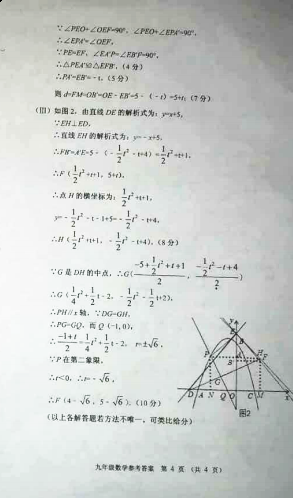 ∵∠PEO+∠OEF=90°, ∠PEO+∠EPA'=90°,
∴∠EPA'=∠OEF,
∵PE=EF, ∠EA'P=∠EB'F=90°,
∴△PEA'≌△EFB', (4分)
∴PA'=EB'=-t, (5分)
则 d=FM=OB'=OE-EB'=5-(-t)=5+t; (7分)
(Ⅲ) 如图2, 由直线 DE 的解析式为: y=x+5,
∵EH⊥ED,
∴直线 EH 的解析式为: y=-x+5,
∴FB'=A'E=5-(-\frac{1}{2}t²-t+4)=\frac{1}{2}t²+t+1,
∴F(\frac{1}{2}t²+t+1, 5+t),
∴点 H 的横坐标为: \frac{1}{2}t²+t+1,
y=-\frac{1}{2}t²-t-1+5=-\frac{1}{2}t²-t+4,
∴H(\frac{1}{2}t²+t+1, -\frac{1}{2}t²-t+4), (8分)
∵G 是 DH 的中点, ∴G(\frac{-5+\frac{1}{2}t²+t+1}{2}, \frac{-\frac{1}{2}t²-t+4}{2})
∴G(\frac{1}{4}t²+\frac{1}{2}t-2, -\frac{1}{4}t²-\frac{1}{2}t+2),
∴PH//x 轴, ∵DG=GH,
∴PG=GQ, 而 Q(-1,0),
∴\frac{-1+t}{2}=\frac{1}{4}t²+\frac{1}{2}t-2, t=±√6,
∵P 在第二象限,
∴t<0, ∴t=-√6,
∴F(4-√6, 5-√6). (10分)
(以上各解答题若方法不唯一, 可类比给分)
D A N Q O C M
图2
九年级数学参考答案 第 4 页 (共 4 页)